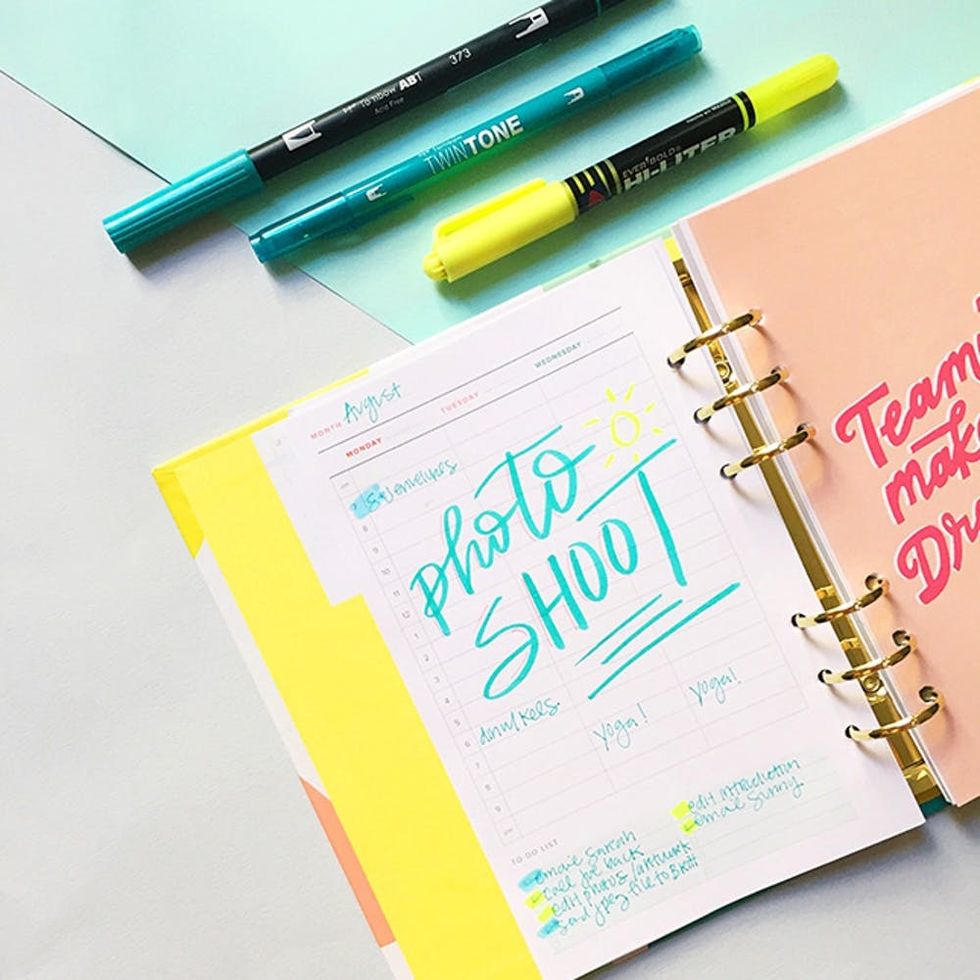 373
Tombow ABT
Acid Free
TWINTONE
EVER BOLD
HI-LITER
MONTH August
MONDAY TUESDAY WEDNESDAY
envelopes
photo
SHOOT
8
9
10
11
12
1
2
3
4
5
6
7
8
9
yoga!
yoga!
TO-DO LIST
email sarah
call joe back
edit photos /
send jpeg file to
edit introduction
email sunny
Team
mak
Dr